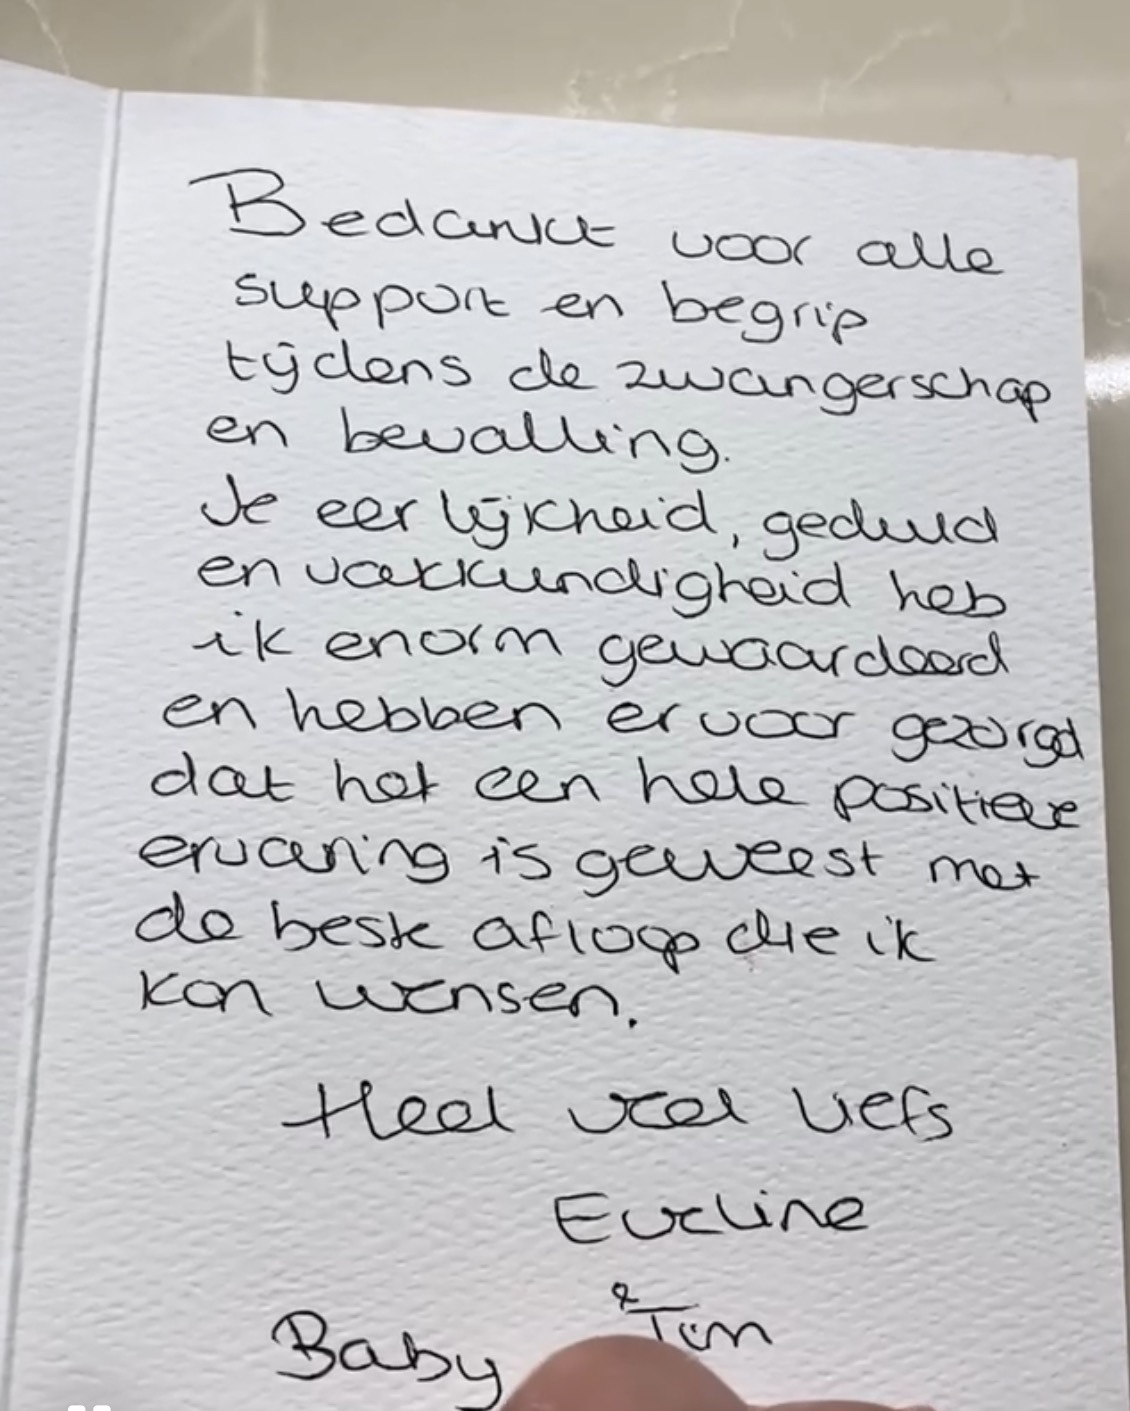 Bedankt voor alle
support en begrip
tijdens de zwangerschap
en bevalling.
Je eerlijkheid, geduld
en vakkundigheid heb
ik enorm gewaardeerd
en hebben ervoor gezorgd
dat het een hele positieve
ervaring is geweest met
de beste afloop die ik
kon wensen.
Heel veel liefs
Eveline
& Tim
Baby